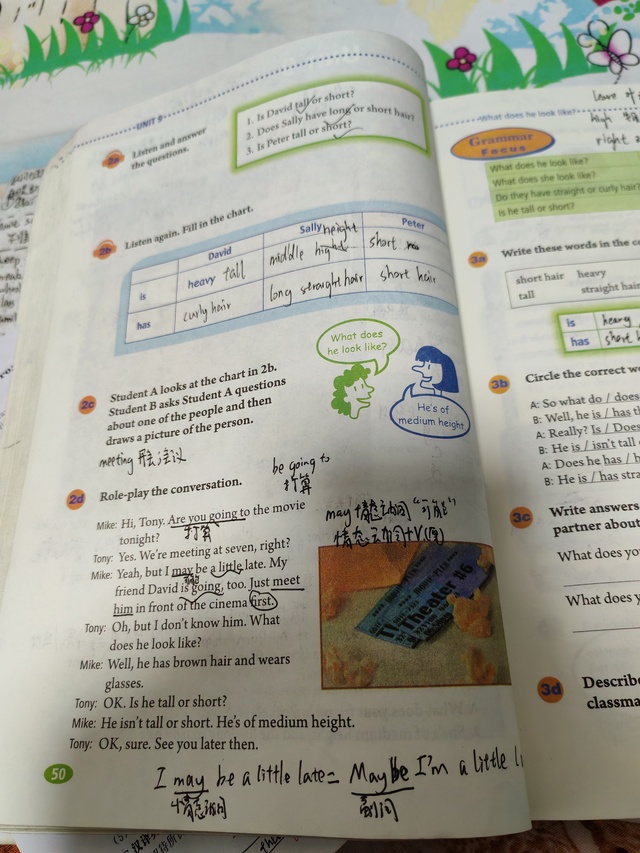 UNIT 9
2a
Listen and answer
the questions.
1. Is David tall or short?
2. Does Sally have long or short hair?
3. Is Peter tall or short?
2b
Listen again. Fill in the chart.
David
Sally
height
Peter
is
heavy tall
middle
short
has
curly hair
long straight hair
short hair
2c
Student A looks at the chart in 2b.
Student B asks Student A questions
about one of the people and then
draws a picture of the person.
What does
he look like?
He's of
medium height.
meeting
be going to
打算
2d
Role-play the conversation.
may 情态动词 "可能"
情态动词+V(原)
Mike: Hi, Tony. Are you going to the movie
打算
tonight?
Tony: Yes. We're meeting at seven, right?
Mike: Yeah, but I may be a little late. My
friend David is going, too. Just meet
him in front of the cinema first.
Tony: Oh, but I don't know him. What
does he look like?
Mike: Well, he has brown hair and wears
glasses.
Tony: OK. Is he tall or short?
Mike: He isn't tall or short. He's of medium height.
Tony: OK, sure. See you later then.
50
I may be a little late = Maybe I'm a little
情态动词
副词
leave
high
right
What does he look like?
Grammar
Focus
What does he look like?
What does she look like?
Do they have straight or curly hair?
Is he tall or short?
3a
Write these words in the
short hair heavy
tall straight hair
is
heavy
has
short
3b
Circle the correct
A: So what do / does
B: Well, he is / has
A: Really? Is / Does
B: He is / isn't tall
A: Does he has /
B: He is / has
3c
Write answers
partner about
What does
What does
3d
Describe